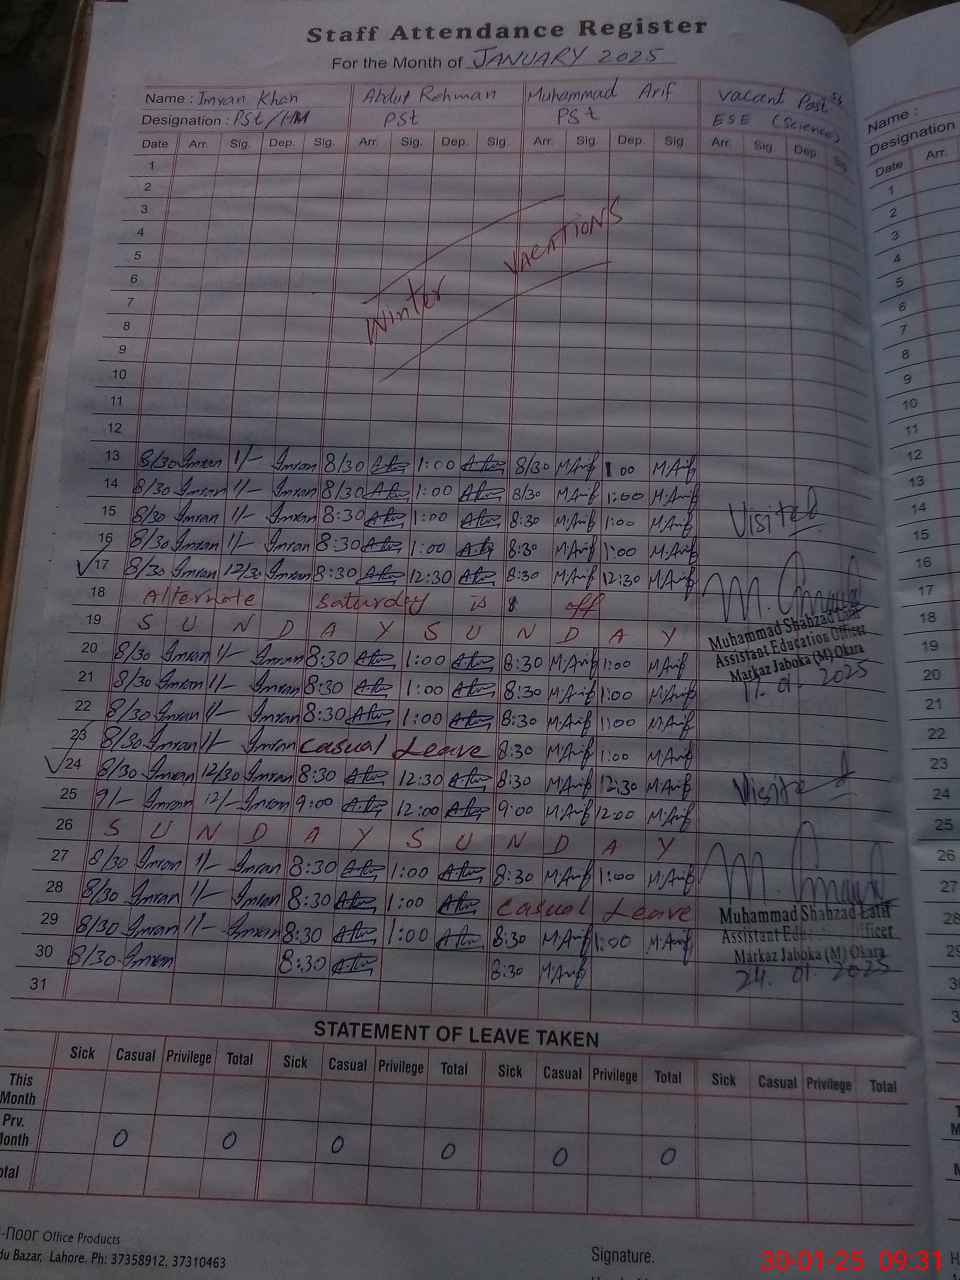 Staff Attendance Register
For the Month of JANUARY 2025
Name : Imran Khan Abdul Rehman Muhammad Arif Vacant Post
Designation : PSt/HM PSt PSt ESE (Science)
Date Arr. Sig. Dep. Sig. Arr. Sig. Dep. Sig. Arr. Sig. Dep. Sig. Arr. Sig. Dep. Sig.
1
2
3
4
5
6
7
8
9
10
11
12
Winter VACATIONS
13 8/30 Imran 1/- Imran 8/30 1:00 8/30 M.Arif 1:00 M.Arif
14 8/30 Imran 1/- Imran 8/30 1:00 8/30 M.Arif 1:00 M.Arif
15 8/30 Imran 1/- Imran 8:30 1:00 8:30 M.Arif 1:00 M.Arif
16 8/30 Imran 1/- Imran 8:30 1:00 8:30 M.Arif 1:00 M.Arif
17 8/30 Imran 12/30 Imran 8:30 12:30 8:30 M.Arif 12:30 M.Arif
18 Alternate Saturday is off
19 S U N D A Y S U N D A Y
20 8/30 Imran 1/- Imran 8:30 1:00 8:30 M.Arif 1:00 M.Arif
21 8/30 Imran 1/- Imran 8:30 1:00 8:30 M.Arif 1:00 M.Arif
22 8/30 Imran 1/- Imran 8:30 1:00 8:30 M.Arif 1:00 M.Arif
23 8/30 Imran 1/- Imran Casual Leave 8:30 M.Arif 1:00 M.Arif
24 8/30 Imran 12/30 Imran 8:30 12:30 8:30 M.Arif 12:30 M.Arif
25 9/- Imran 12/- Imran 9:00 12:00 9:00 M.Arif 12:00 M.Arif
26 S U N D A Y S U N D A Y
27 8/30 Imran 1/- Imran 8:30 1:00 8:30 M.Arif 1:00 M.Arif
28 8/30 Imran 1/- Imran 8:30 1:00 Casual Leave
29 8/30 Imran 1/- Imran 8:30 1:00 8:30 M.Arif 1:00 M.Arif
30 8/30 Imran 8:30 8:30 M.Arif
31
Visited
Muhammad Shahzad Latif
Assistant Education Officer
Markaz Jaboka (M) Okara
17.01.2025
Visited
Muhammad Shahzad Latif
Assistant Education Officer
Markaz Jaboka (M) Okara
24.01.2025
STATEMENT OF LEAVE TAKEN
Sick Casual Privilege Total Sick Casual Privilege Total Sick Casual Privilege Total Sick Casual Privilege Total
This
Month
Prv.
onth 0 0 0 0 0 0
otal
Office Products
du Bazar, Lahore. Ph: 37358912, 37310463
Signature.
Name :
Designation
Date Arr.
1
2
3
4
5
6
7
8
9
10
11
12
13
14
15
16
17
18
19
20
21
22
23
24
25
26
27
28
29
30-01-25 09:31